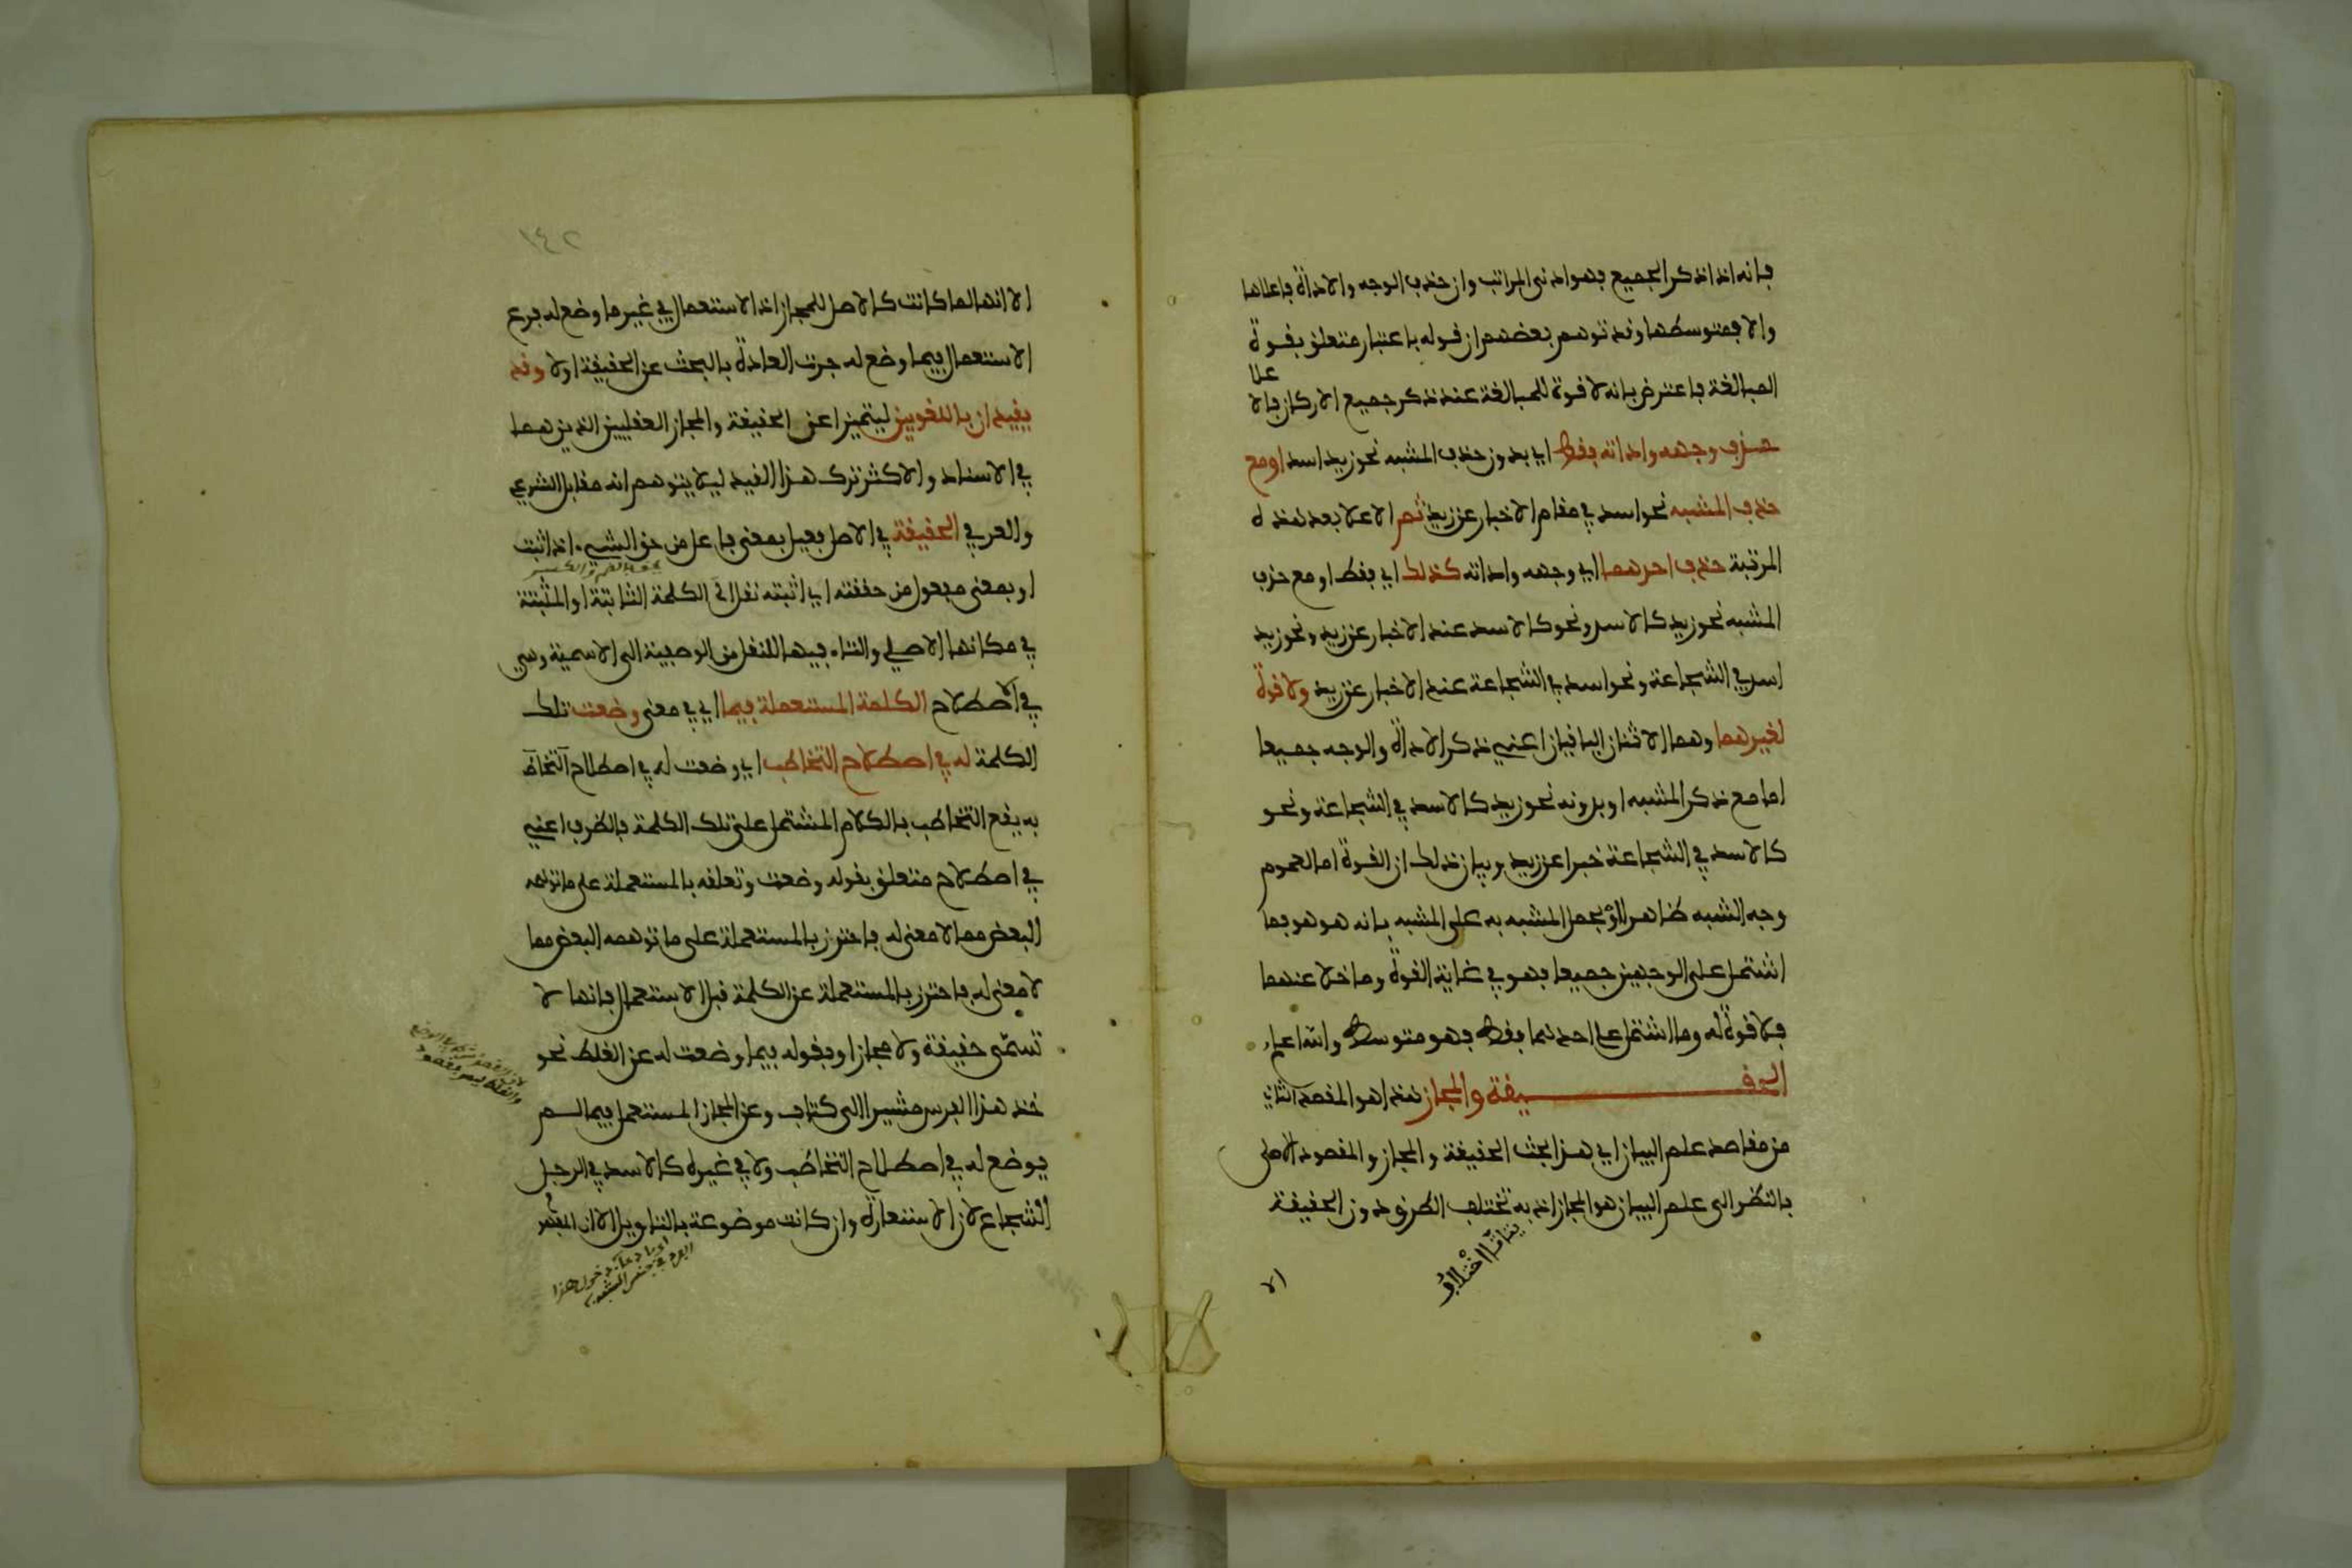 فانه اذا ذكر الجميع فهو ادنى المراتب وان حذف الوجه والاداة فاعلاها
والا فمتوسطها وقد توهم بعضهم ان قوله باعتبار متعلق بقوة
المبالغة فاعترض بانه لا قوة للمبالغة عند ذكر جميع الاركان فالا
على
حذف وجهه واداته فقط اي بدون حذف المشبه نحو زيد اسد او مع
حذف المشبه نحو اسد في مقام الاخبار عن زيد ثم الاعلا بعد هذه
المرتبة حذف احدهما اي وجهه واداته كذلك اي فقط او مع حذف
المشبه نحو زيد كالاسد ونحو كالاسد عند الاخبار عن زيد ونحو زيد
اسد في الشجاعة ونحو اسد في الشجاعة عند الاخبار عن زيد ولا قوة
لغيرهما وهما الاثنان الباقيان اعني ذكر الاداة والوجه جميعا
اما مع ذكر المشبه او بدونه نحو زيد كالاسد في الشجاعة ونحو
كالاسد في الشجاعة خبرا عن زيد وبيان ذلك ان القوة اما لعموم
وجه الشبه ظاهرا او بحمل المشبه به على المشبه بانه هو هو فما
اشتمل على الوجهين جميعا فهو في غاية القوة وما خلا عنهما
فلا قوة له وما اشتمل على احدهما فقط فهو متوسط والله اعلم
الحقيقة والمجاز هذا هو المقصد الثاني
من مقاصد علم البيان اي هذا بحث الحقيقة والمجاز والمقصود الاصلي
بالنظر الى علم البيان هو المجاز اذ به تختلف الطرق دون الحقيقة
يتاتى اختلاف
الا
١٤٢
الا انها لما كانت كالاصل للمجاز اذ الاستعمال في غير ما وضع له فرع
الاستعمال فيما وضع له جرت العادة بالبحث عن الحقيقة اولا وقد
يقيدان باللغويين ليتميزا عن الحقيقة والمجاز العقليين الذين هما
في الاسناد والاكثر ترك هذا القيد ليلا يتوهم انه مقابل الشرعي
والعرفي الحقيقة في الاصل فعيل بمعنى فاعل من حق الشيء اذا ثبت
او بمعنى مفعول من حققته اي اثبته نقل الى الكلمة الثابتة او المثبتة
في مكانها الاصلي والتاء فيها للنقل من الوصفية الى الاسمية وهي
في الاصطلاح الكلمة المستعملة فيما اي في معنى وضعت تلك
الكلمة له في اصطلاح التخاطب اي وضعت له في اصطلاح التخاط
به يقع التخاطب بالكلام المشتمل على تلك الكلمة فالظرف اعني
في اصطلاح متعلق بقوله وضعت وتعلقه بالمستعملة على ما توهمه
البعض مما لا معنى له فاحترز بالمستعملة على ما توهمه البعض مما
لا معنى له فاحترز بالمستعملة عن الكلمة قبل الاستعمال فانها لا
تسمى حقيقة ولا مجازا وبقوله فيما وضعت له عن الغلط نحو
خذ هذا الفرس مشيرا الى كتاب وعن المجاز المستعمل فيما لم
يوضع له في اصطلاح التخاطب ولا في غيره كالاسد في الرجل
الشجاع لان الاستعارة وان كانت موضوعة بالتاويل الا ان المفهم